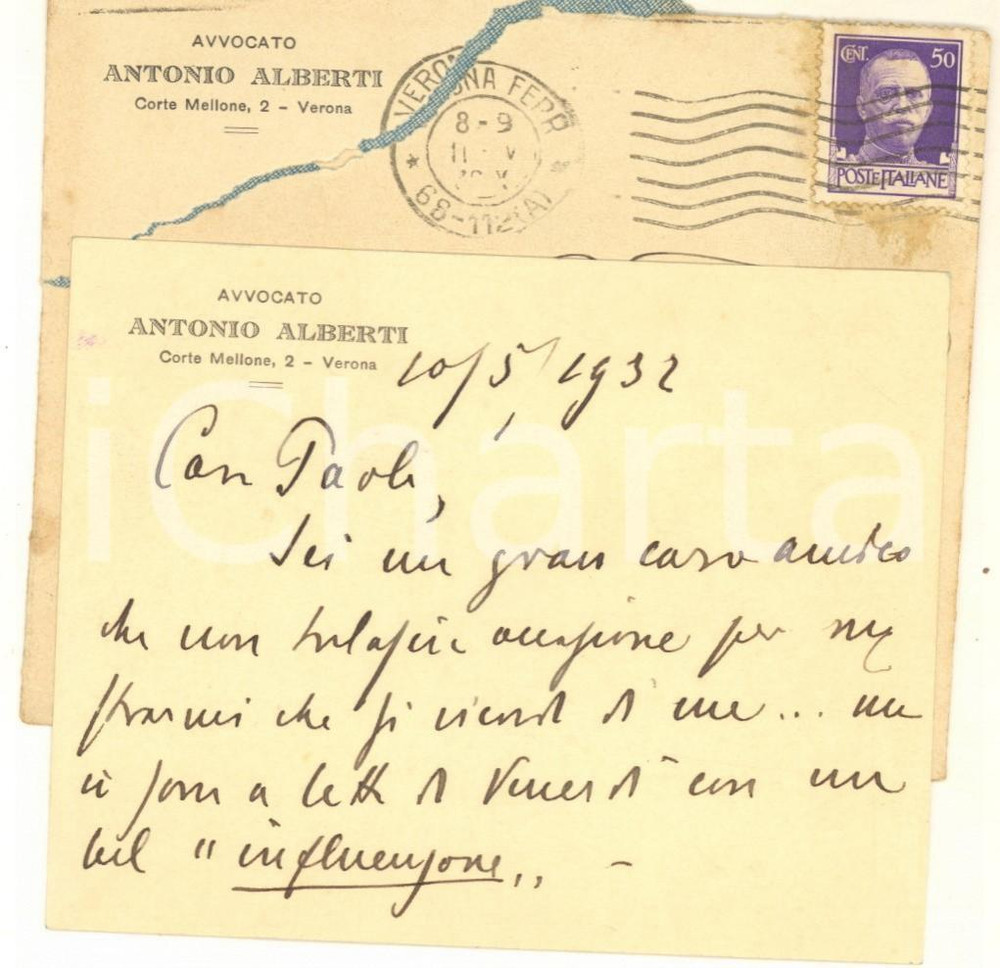 AVVOCATO
ANTONIO ALBERTI
Corte Mellone, 2 - Verona
VERONA FERR
8-9
68-112(A)
CENT. 50
POSTE ITALIANE
AVVOCATO
ANTONIO ALBERTI
Corte Mellone, 2 - Verona
10/5/1932
iCharta
Caro Paoli,
Sei un gran caro amico
che non tralasci occasione per mo
strarmi che ti ricordi di me... ma
io sono a letto di Venerdì con un
bel "influenzone" -